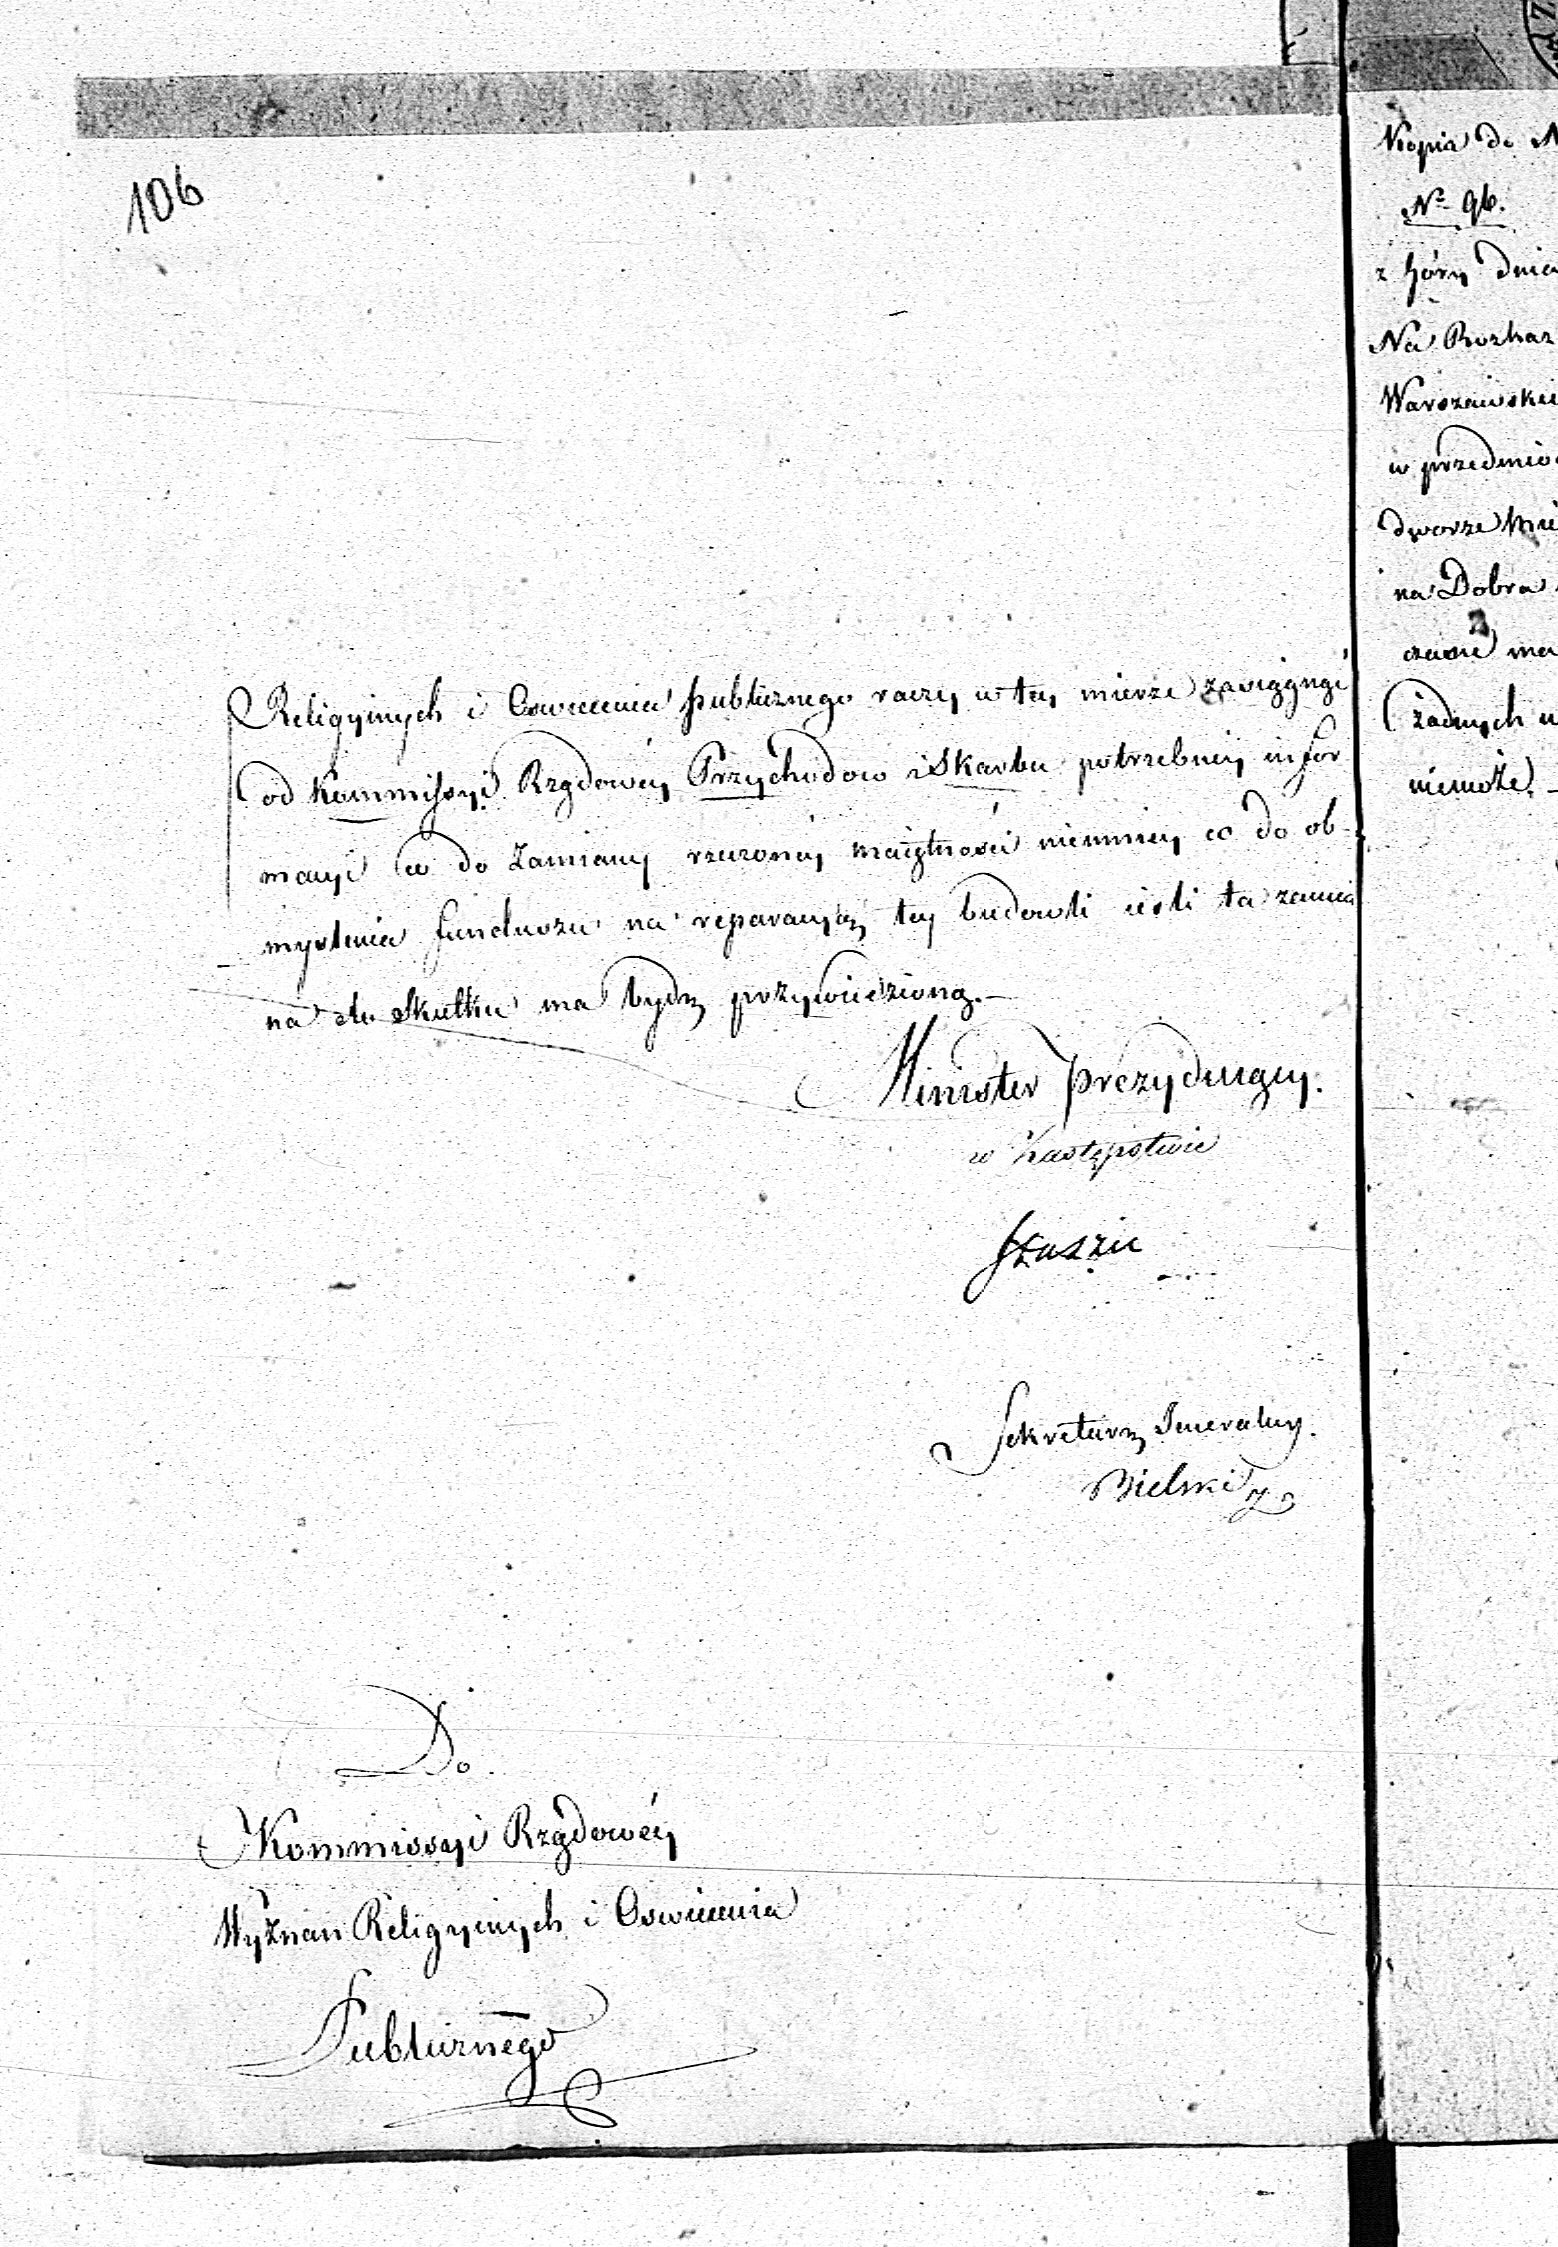 106
Religyinych i Oswiecenia Publicznego raczy w tey mierze zasięgnąć
od Kommissyi Rządowéy Przychodow i Skarbu potrzebney infor
macyi co do Zamiany rzeczonéy maiętności niemniey co do ob-
myslenia funduszu na reparacyą tey budowli iesli ta zamia
na do skutku ma bydz przywiedzioną.—
Minister Prezyduiący.
w Zastępstwie
Staszic
Sekretarz Jeneralny.
Bielski
Do
Kommissyi Rządowéy
Wyznan Religyinych i Oswiecenia
Publicznego
Kopia do N
No 96.
z Góry dnia
Na Rozkaz
Warszawskie
w przedmio
dworze
na Dobra
czasie ma
żadnych u
niemoże. —